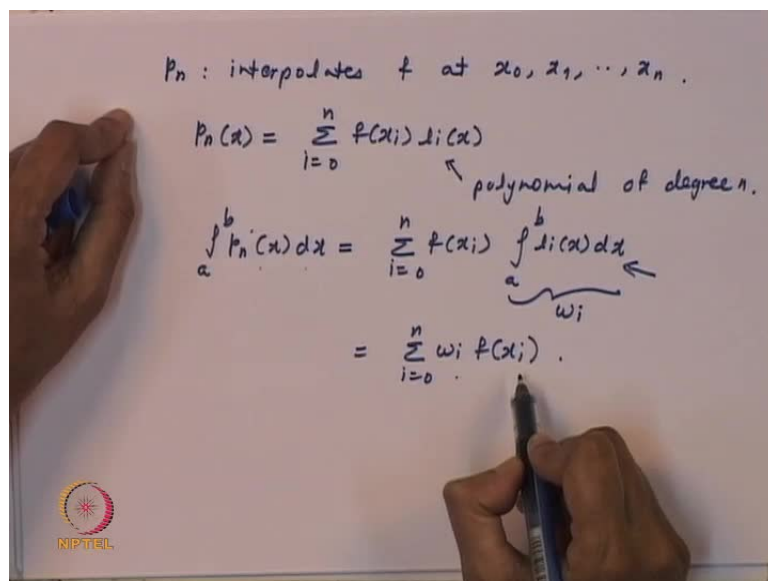 pn : interpolates f at x0, x1, .., xn .
pn(x) = n Σ i=0 f(xi) li(x)
↖ polynomial of degree n.
b ∫ a pn(x) dx = n Σ i=0 f(xi) b ∫ a li(x) dx
wi
= n Σ i=0 wi f(xi) .
NPTEL